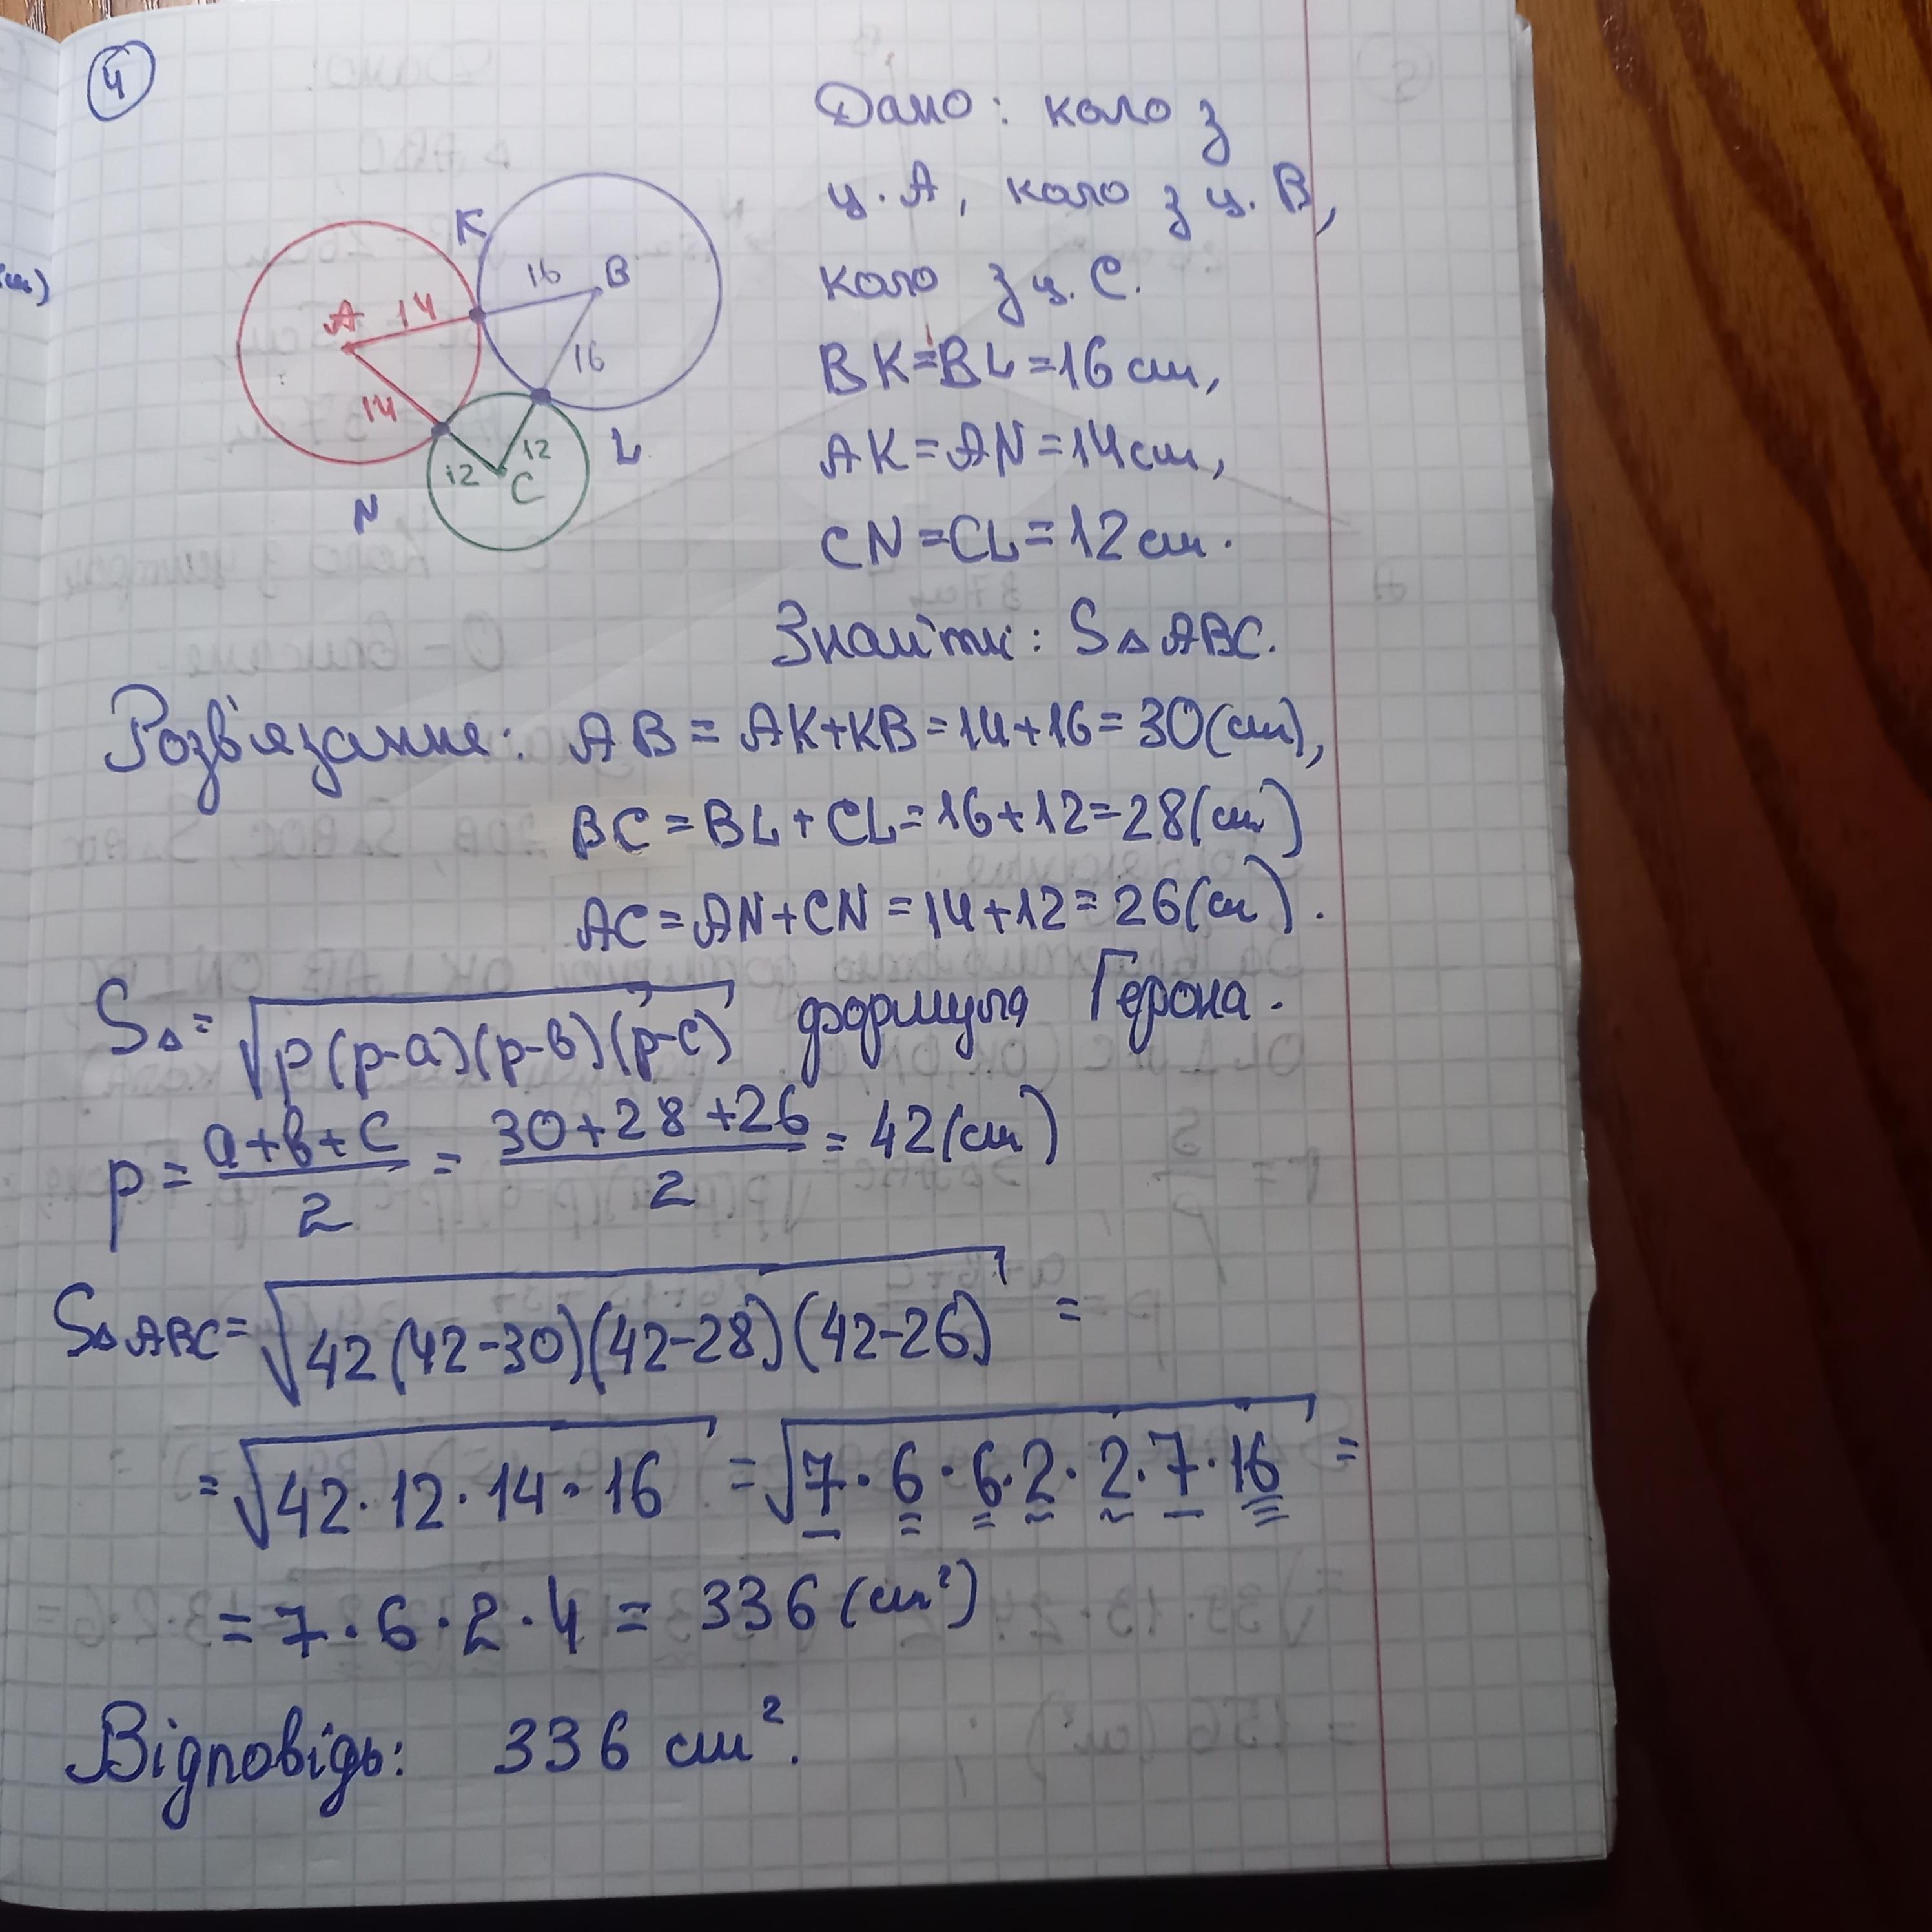 4
Дано: коло з
ц. А, коло з ц. В,
коло з ц. С.
BK=BL=16 см,
AK=AN=14 см,
CN=CL=12 см.
Знайти: S△ABC.
K
16
B
A
14
16
14
12
12
C
L
N
Розв'язання: AB = AK+KB=14+16=30(см),
BC=BL+CL=16+12=28(см)
AC=AN+CN=14+12=26(см).
S△=√p(p-a)(p-b)(p-c) формула Герона.
p=(a+b+c)/2=(30+28+26)/2=42(см)
S△ABC=√42(42-30)(42-28)(42-26) =
=√42·12·14·16 =√7·6·6·2·2·7·16 =
=7·6·2·4= 336(см²)
Відповідь: 336 см².